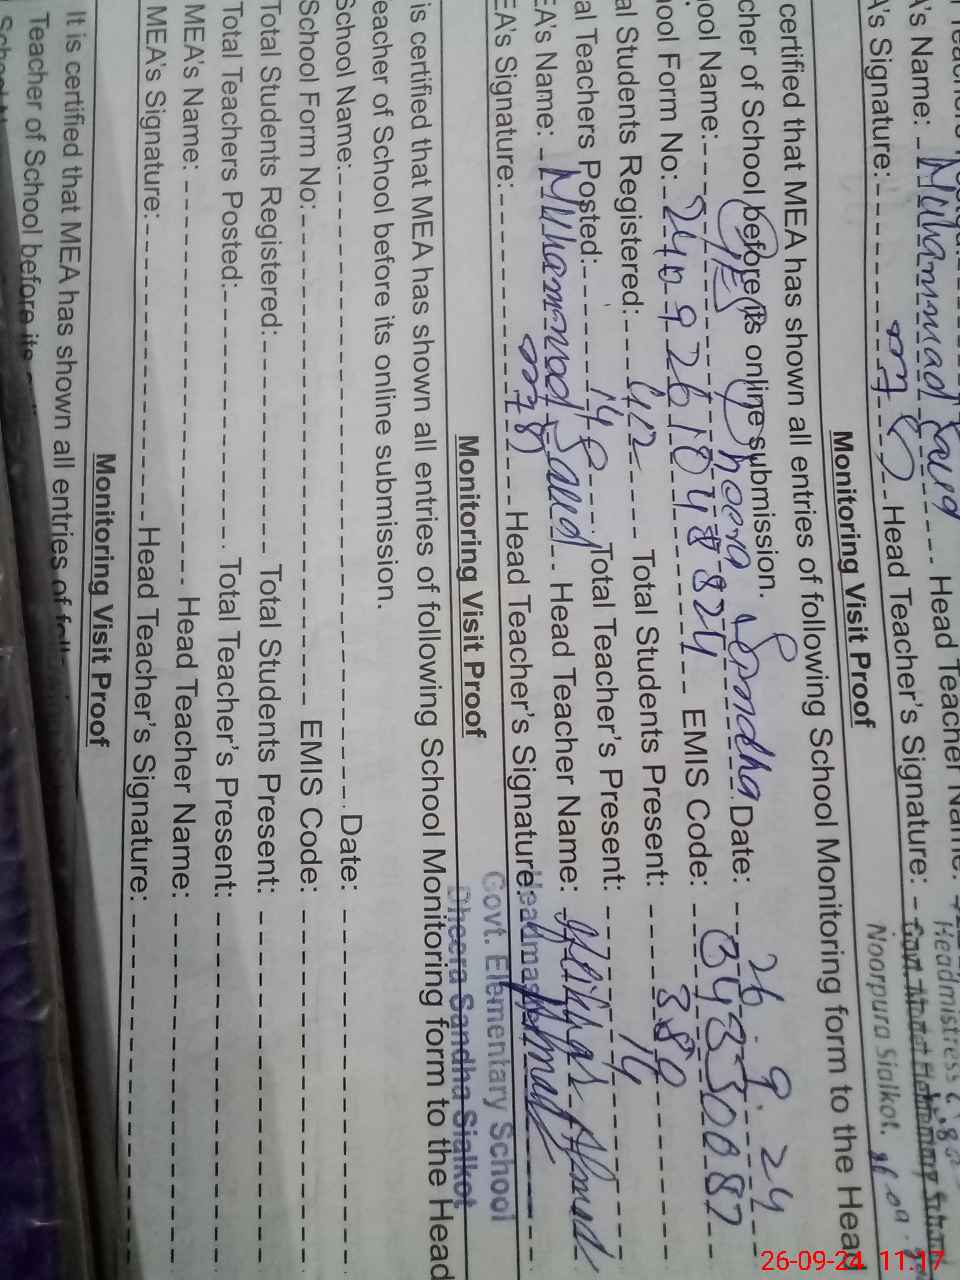 A's Name: Muhammad Saud Head Teacher Name:
Headmistress
A's Signature: Head Teacher's Signature:
Noorpura Sialkot.
Monitoring Visit Proof
certified that MEA has shown all entries of following School Monitoring form to the Head
cher of School before its online submission.
ool Name: GES Dheera Sandha Date: 26.9.24
ool Form No: 2409261048824 EMIS Code:
al Students Registered: 412 Total Students Present: 389
al Teachers Posted: 14 Total Teacher's Present: 14
EA's Name: Muhammad Saud Head Teacher Name: Ahmad
EA's Signature: Head Teacher's Signature:
Headmaster
Govt. Elementary School
Dheera Sandha Sialkot
Monitoring Visit Proof
is certified that MEA has shown all entries of following School Monitoring form to the Head
eacher of School before its online submission.
School Name: Date:
School Form No: EMIS Code:
Total Students Registered: Total Students Present:
Total Teachers Posted: Total Teacher's Present:
MEA's Name: Head Teacher Name:
MEA's Signature: Head Teacher's Signature:
Monitoring Visit Proof
It is certified that MEA has shown all entries of
Teacher of School before its
26-09-24 11:17